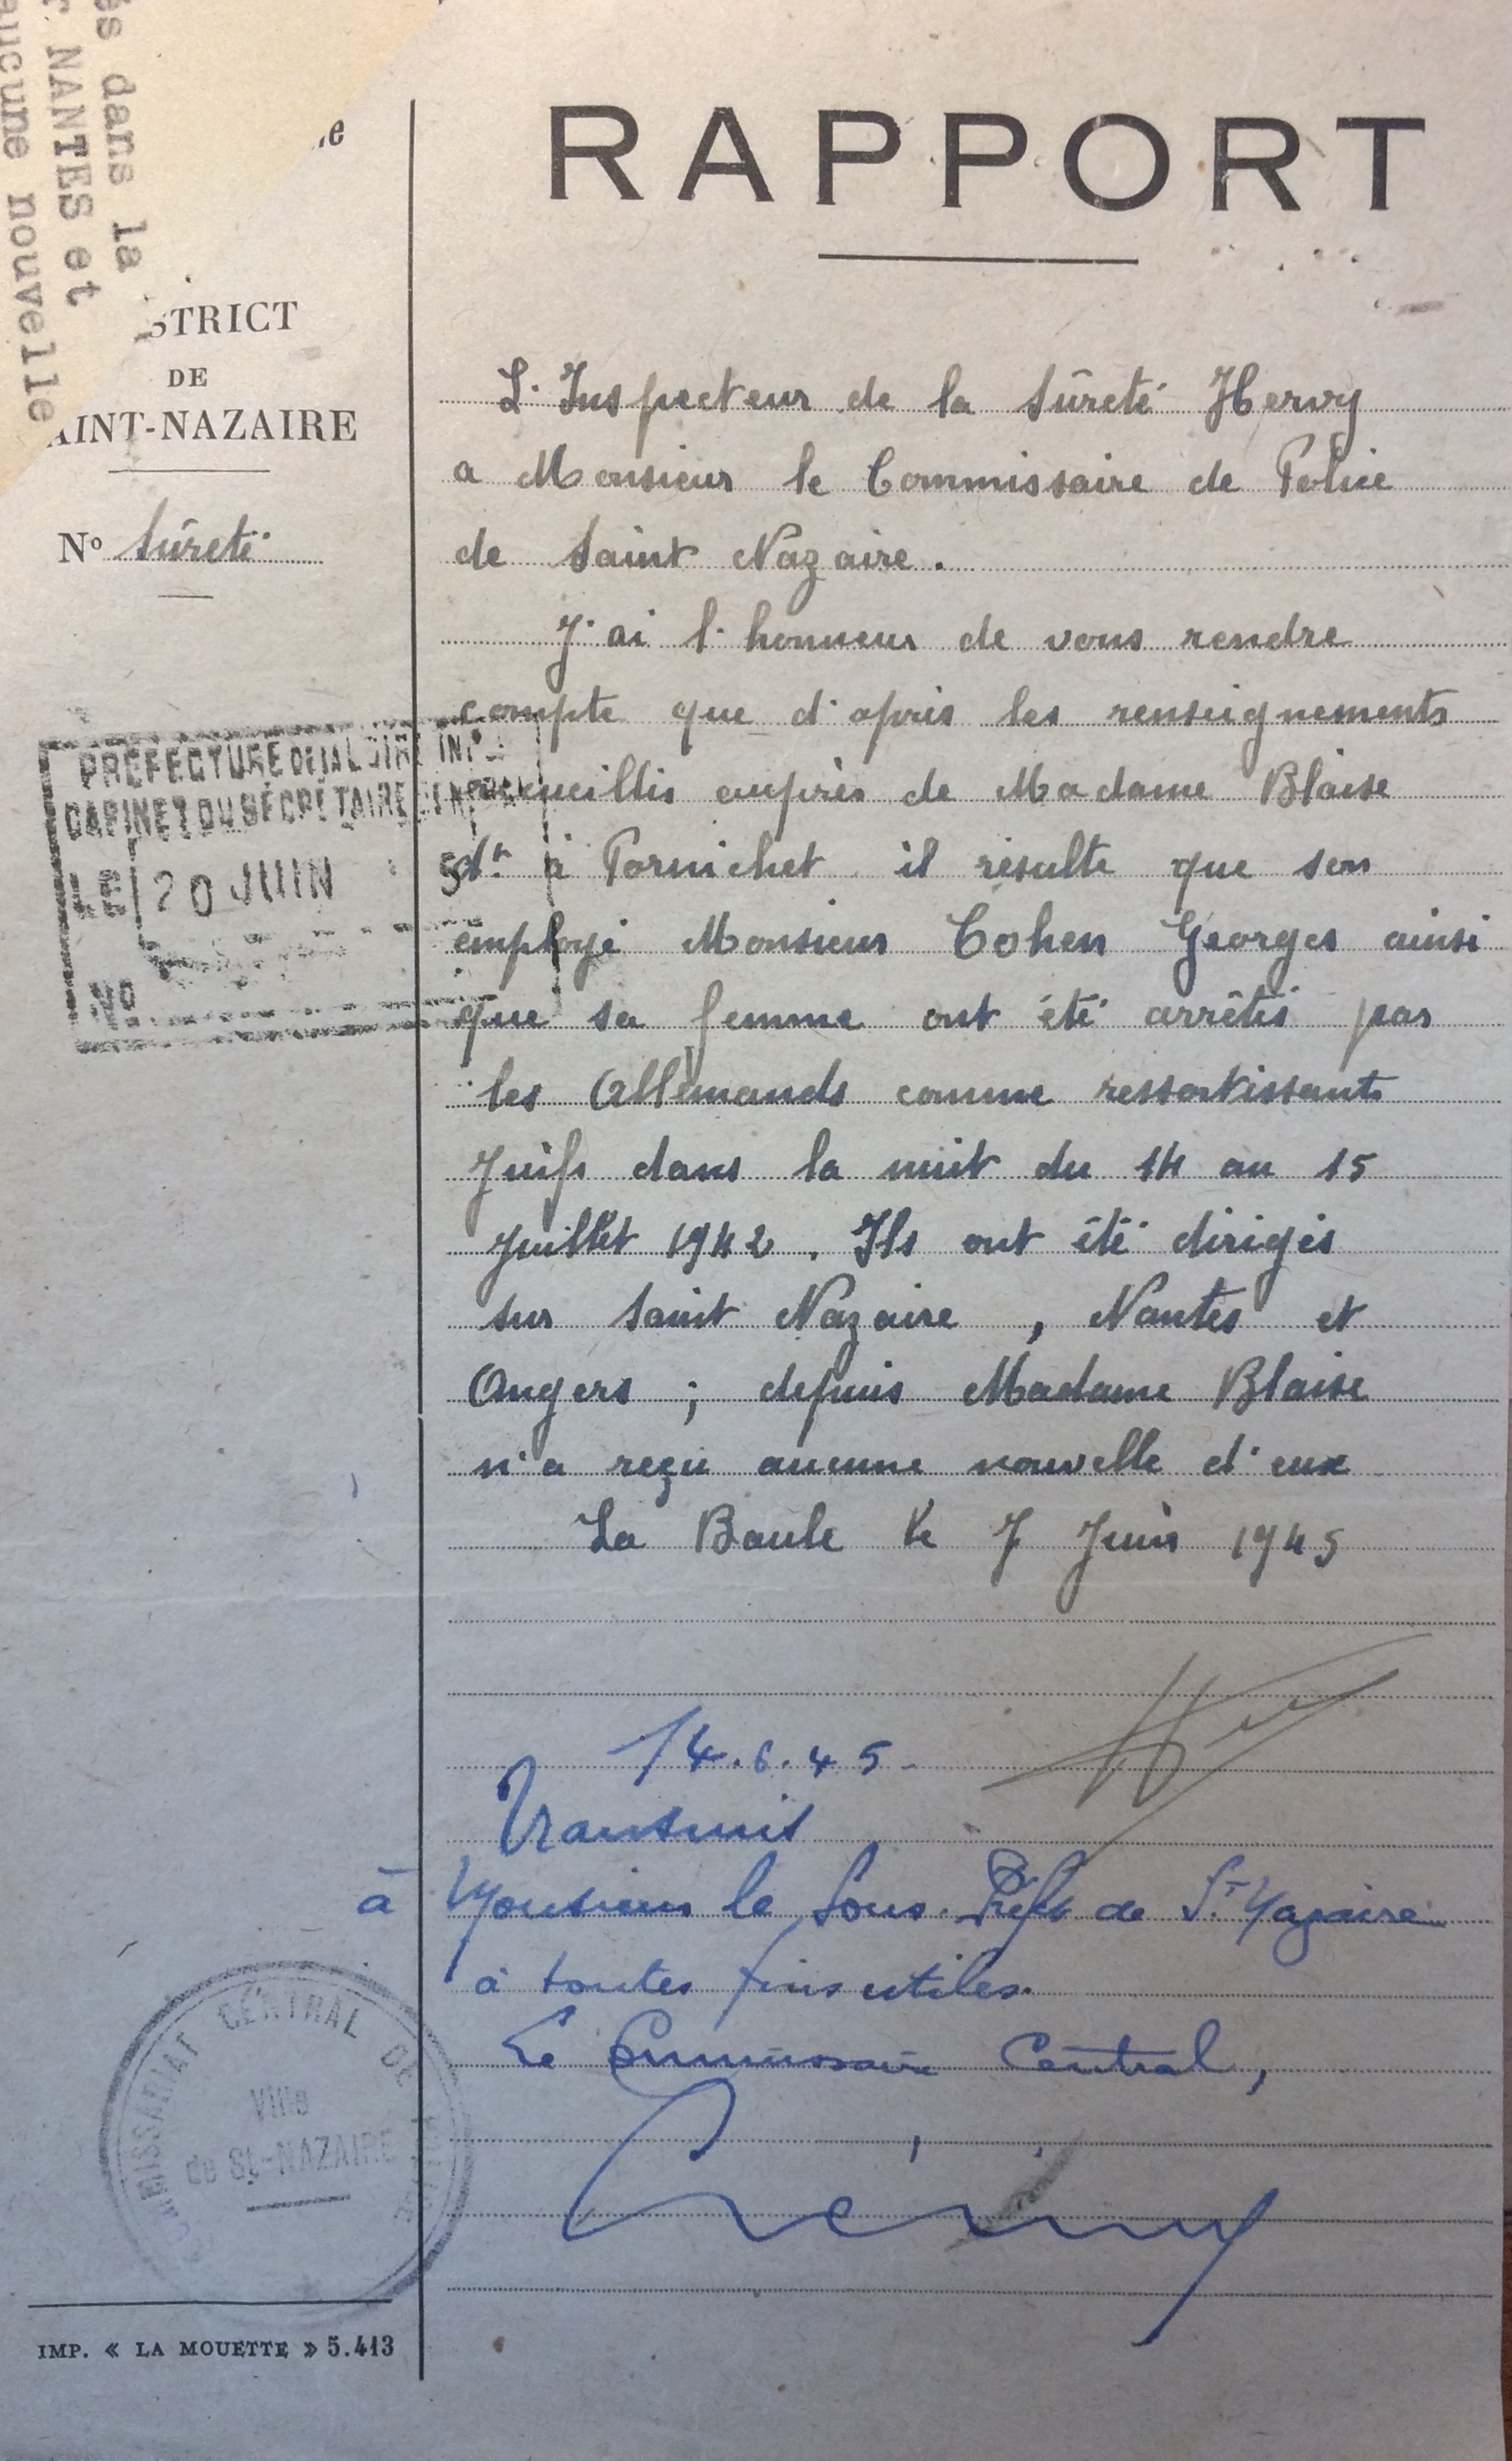 és dans la
NANTES et
aucune nouvelle
RAPPORT
STRICT
DE
AINT-NAZAIRE
N° Sûreté
L'Inspecteur de la Sûreté Hervy
a Monsieur le Commissaire de Police
de Saint Nazaire.
J'ai l'honneur de vous rendre
compte que d'après les renseignements
recueillis auprès de Madame Blaise
dt à Pornichet il résulte que son
employé Monsieur Cohen Georges ainsi
que sa femme ont été arrêtés par
les Allemands comme ressortissants
Juifs dans la nuit du 14 au 15
Juillet 1942. Ils ont été dirigés
sur Saint Nazaire, Nantes et
Angers; depuis Madame Blaise
n'a reçu aucune nouvelle d'eux
La Baule le 7 Juin 1945
PRÉFECTURE DE LA LOIRE INF
CABINET DU SECRÉTAIRE GÉNÉRAL
LE 20 JUIN 5
N°
14.6.45-
Transmis
à Monsieur le Sous-Préfet de St. Nazaire
à toutes fins utiles.
Le Commissaire Central,
COMMISSARIAT CENTRAL DE
Ville
de St-NAZAIRE
IMP. « LA MOUETTE » 5.413